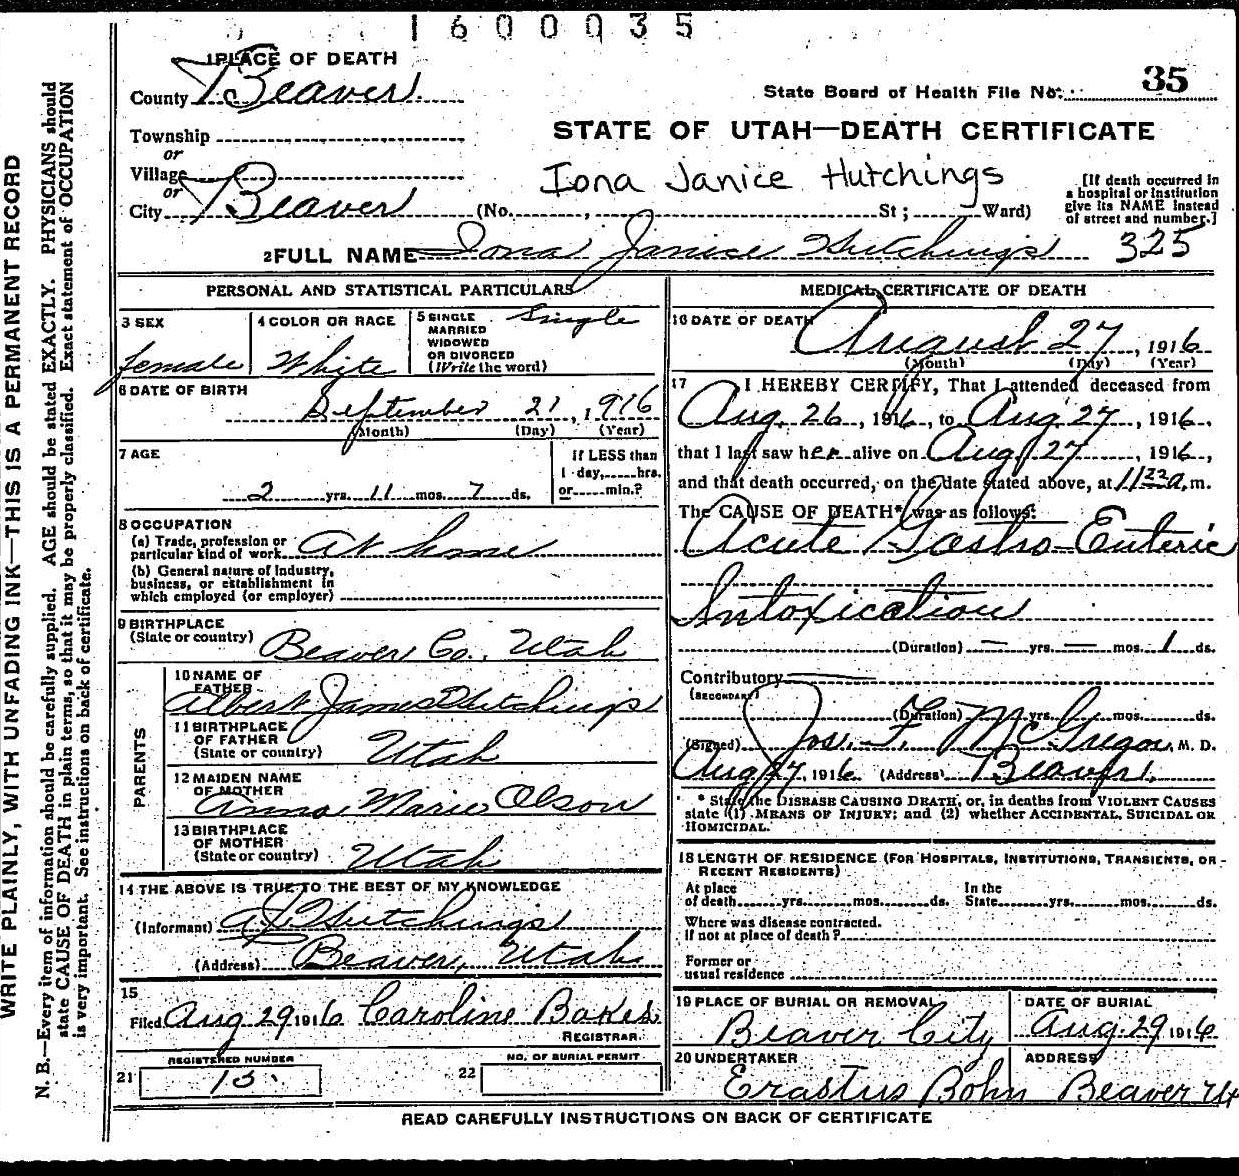 1600035
1 PLACE OF DEATH
County Beaver
State Board of Health File No. 35
Township
or
Village
or
City Beaver (No. , St; Ward)
STATE OF UTAH—DEATH CERTIFICATE
Iona Janice Hutchings
[If death occurred in
a hospital or institution
give its NAME instead
of street and number.]
2 FULL NAME Iona Janice Hutchings
325
PERSONAL AND STATISTICAL PARTICULARS
3 SEX
female
4 COLOR OR RACE
White
5 SINGLE
MARRIED
WIDOWED
OR DIVORCED
(Write the word)
Single
6 DATE OF BIRTH
September 21, 1916
(Month) (Day) (Year)
7 AGE
2 yrs. 11 mos. 7 ds.
If LESS than
1 day, hrs.
or min.?
8 OCCUPATION
(a) Trade, profession or
particular kind of work At home
(b) General nature of Industry,
business, or establishment in
which employed (or employer)
9 BIRTHPLACE
(State or country) Beaver Co., Utah
PARENTS
10 NAME OF
FATHER
Albert James Hutchings
11 BIRTHPLACE
OF FATHER
(State or country) Utah
12 MAIDEN NAME
OF MOTHER
Anna Marie Olson
13 BIRTHPLACE
OF MOTHER
(State or country) Utah
14 THE ABOVE IS TRUE TO THE BEST OF MY KNOWLEDGE
(Informant) A J Hutchings
(Address) Beaver, Utah
15
Filed Aug 29 1916 Caroline Bakes
REGISTRAR
REGISTERED NUMBER
21 13
NO. OF BURIAL PERMIT
22
MEDICAL CERTIFICATE OF DEATH
16 DATE OF DEATH
August 27, 1916
(Month) (Day) (Year)
17 I HEREBY CERTIFY, That I attended deceased from
Aug. 26, 1916, to Aug 27, 1916,
that I last saw her alive on Aug 27, 1916,
and that death occurred, on the date stated above, at 11 22 a.m.
The CAUSE OF DEATH* was as follows:
Acute Gastro-Enteric
Intoxication
(Duration) — yrs. — mos. 1 ds.
Contributory
(SECONDARY)
(Duration) yrs. mos. ds.
(Signed) Jos. F. McGregor, M. D.
Aug 27, 1916 (Address) Beaver
* State the DISEASE CAUSING DEATH, or, in deaths from VIOLENT CAUSES
state (1) MEANS OF INJURY; and (2) whether ACCIDENTAL, SUICIDAL OR
HOMICIDAL.
18 LENGTH OF RESIDENCE (FOR HOSPITALS, INSTITUTIONS, TRANSIENTS, OR
RECENT RESIDENTS)
At place
of death yrs. mos. ds.
In the
State yrs. mos. ds.
Where was disease contracted.
If not at place of death?
Former or
usual residence
19 PLACE OF BURIAL OR REMOVAL
Beaver City
DATE OF BURIAL
Aug. 29 1916
20 UNDERTAKER
Erastus Bohn
ADDRESS
Beaver Ut
READ CAREFULLY INSTRUCTIONS ON BACK OF CERTIFICATE
WRITE PLAINLY, WITH UNFADING INK—THIS IS A PERMANENT RECORD
N. B.—Every item of information should be carefully supplied. AGE should be stated EXACTLY. PHYSICIANS should
state CAUSE OF DEATH in plain terms, so that it may be properly classified. Exact statement of OCCUPATION
is very important. See instructions on back of certificate.